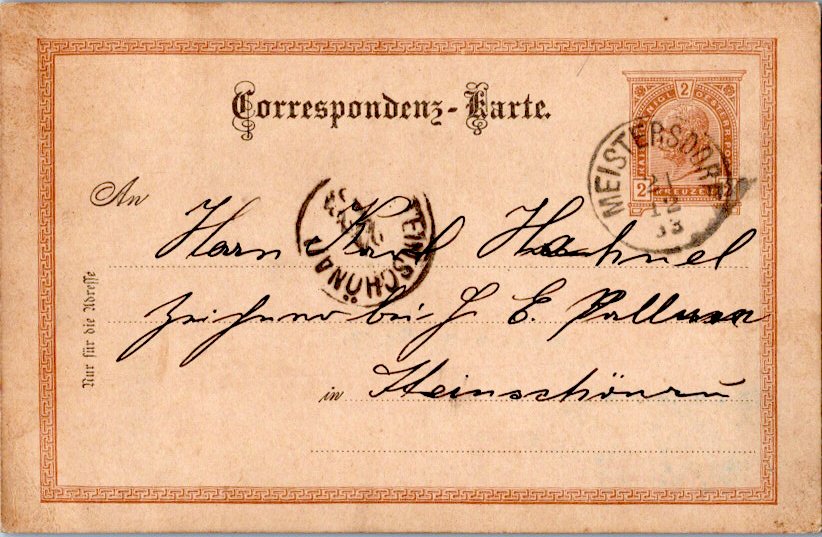 Correspondenz-Karte.
2
KAIS. KÖNIGL. OESTERR. POST
2 KREUZER 2
MEISTERSDORF
21
12
93
STEINSCHÖNAU
An Herrn Karl Hahnel
Zeichner bei H. E. Palluan
in Steinschönau
Nur für die Adresse